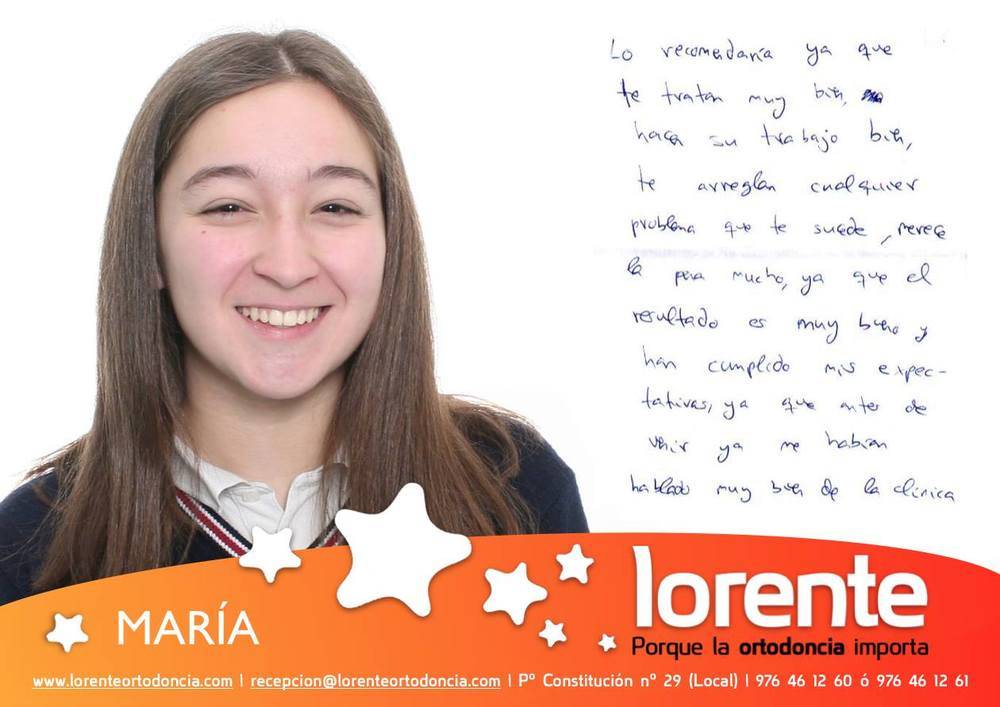 Lo recomendaría ya que
te tratan muy bien,
hacen su trabajo bien,
te arreglan cualquier
problema que te sucede, merece
la pena mucho, ya que el
resultado es muy bueno y
han cumplido mis expec-
tativas, ya que antes de
venir ya me habian
hablado muy bien de la clinica
MARÍA
lorente
Porque la ortodoncia importa
www.lorenteortodoncia.com | recepcion@lorenteortodoncia.com | Pº Constitución nº 29 (Local) | 976 46 12 60 ó 976 46 12 61